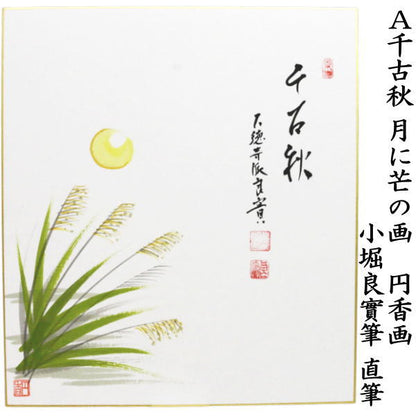 A千古秋 月に芒の画 円香画
小堀良實筆 直筆
千古秋
大徳寺派良實